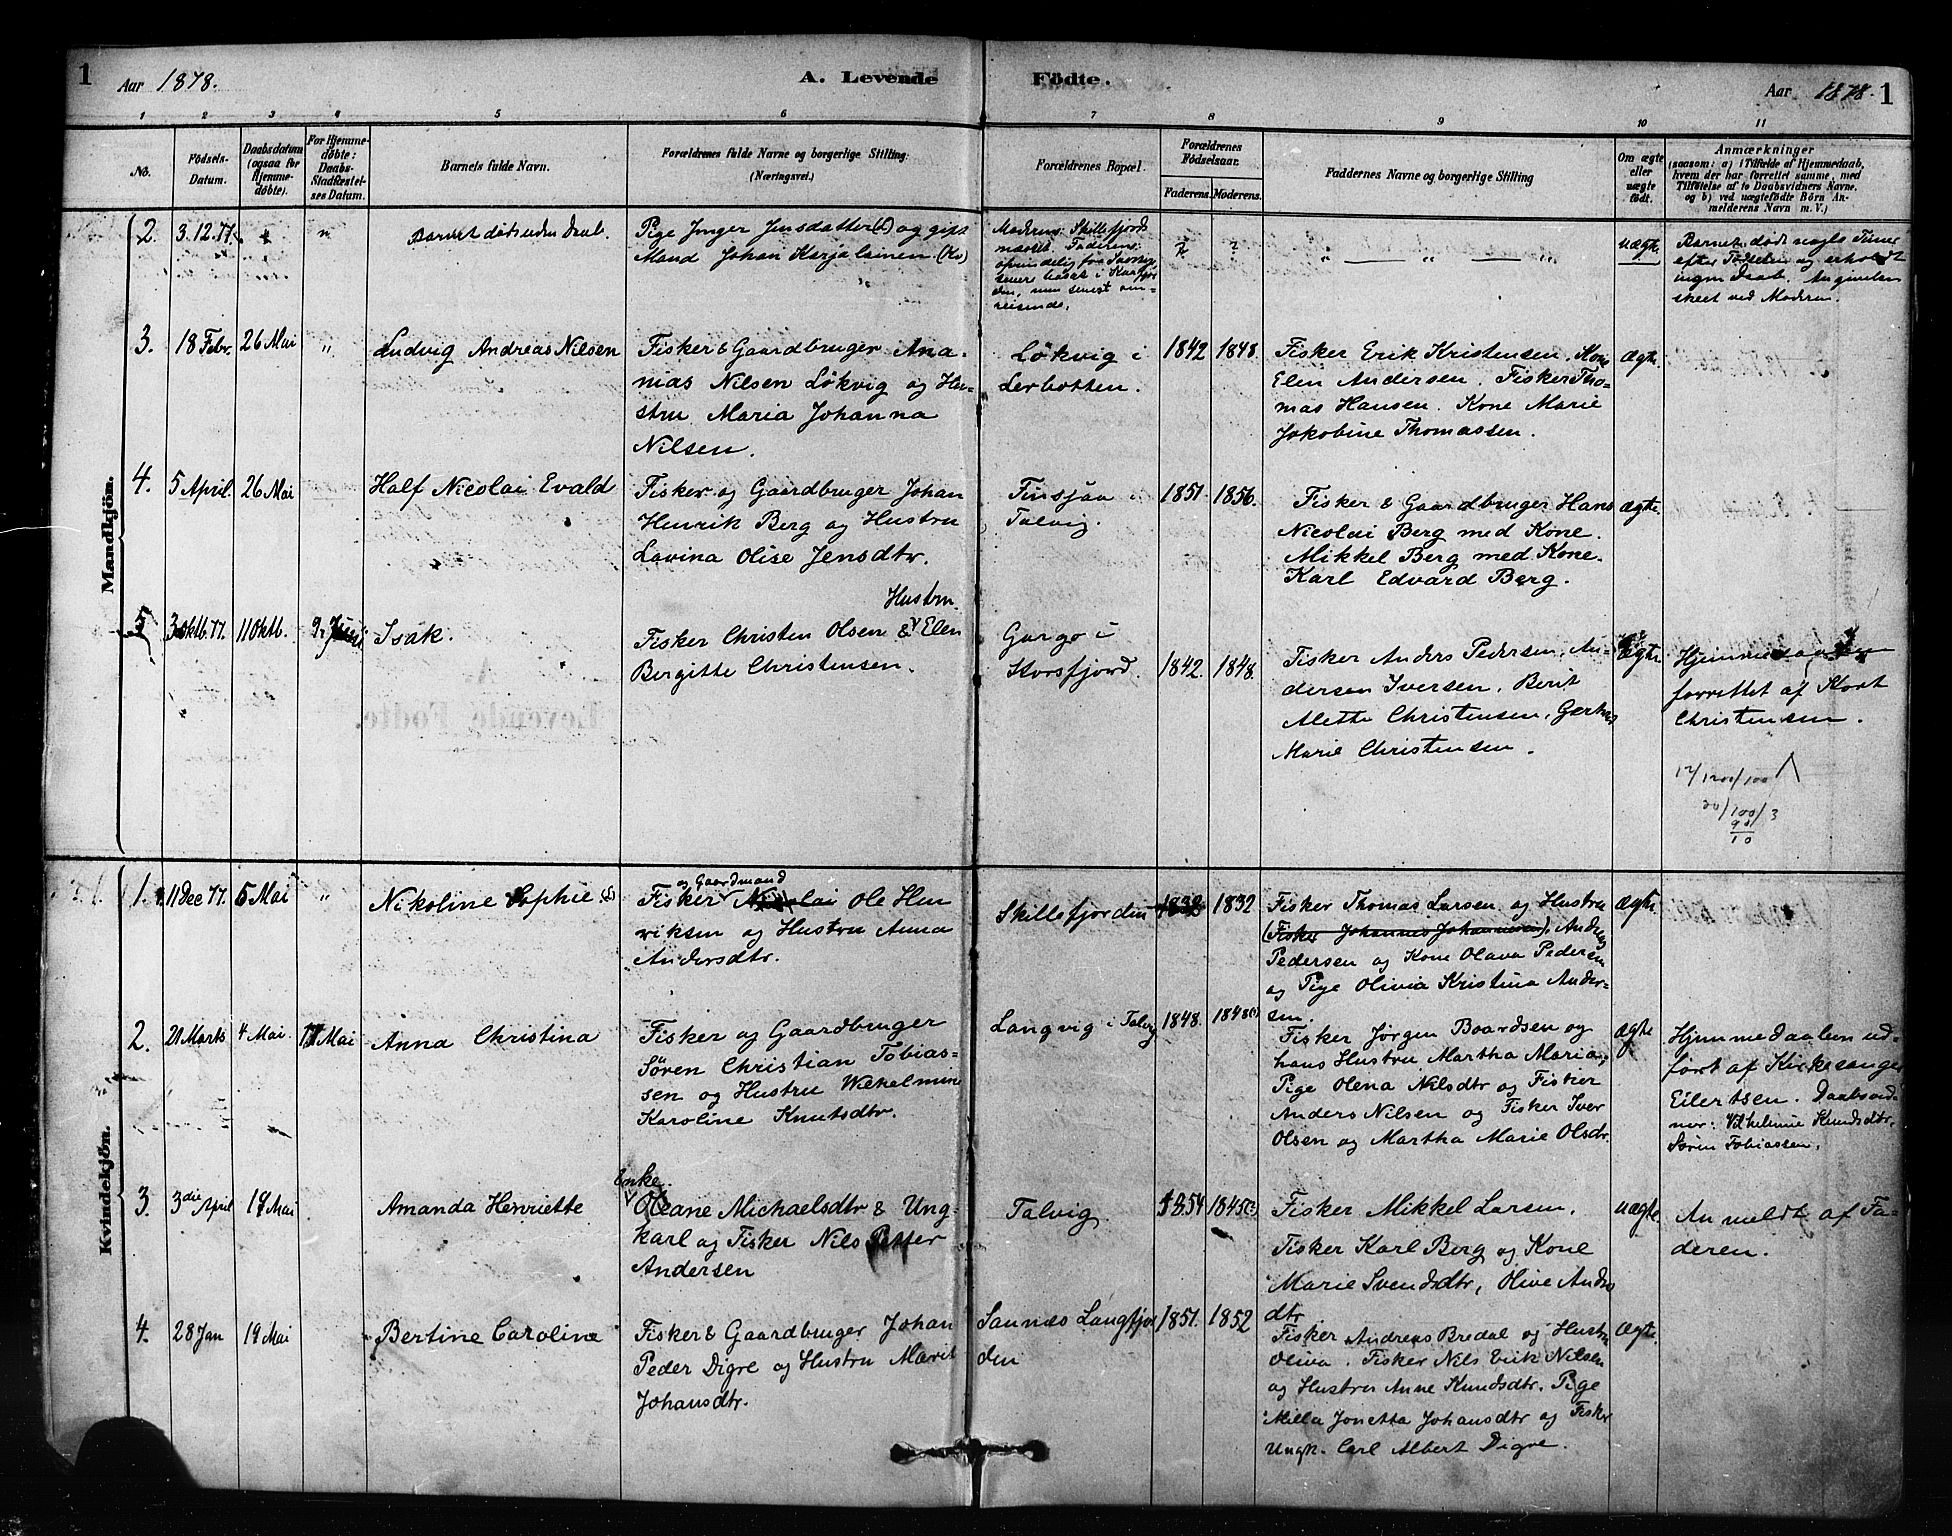 1
Aar 1878.
A. Levende
Födte.
Aar 1878.
1
1 2 3 4 5 6 7 8 9 10 11
No.
Födsels-
Datum.
Daabsdatum
(ogsaa for
Hjemme-
døbte).
For Hjemme-
døbte:
Daabs-
Stadfæstel-
ses Datum.
Barnets fulde Navn.
Forældrenes fulde Navne og borgerlige Stilling:
(Næringsvei.)
Forældrenes Bopæl.
Forældrenes
Födselsaar.
Faderens. Moderens.
Faddernes Navne og borgerlige Stilling
Om ægte
eller
uægte
födt.
Anmærkninger
(saasom: a) i Tilfælde af Hjemmedaab,
hvem der har forrettet samme, med
Tilföielse af to Daabsvidners Navne.
og b) ved uægtefödte Börn An-
melderens Navn m. V.)
Mandkjön.
2. 3.12.77. " "
Barnet døde uden Daab.
Pige Inger Jensdatter og gift
Mand Johan Karjalainen (Kv)
Moderens: Skillefjord
Faderens:
oprindelig fra
senere bosat i
den, men senest om-
reisende.
? ?
" — " — "
uægte.
Barnet døde nogle Timer
efter Fødselen og erholdt
ingen Daab. Angivelsen
skeet ved Moderen.
3. 18 Febr. 26 Mai "
Ludvig Andreas Nilsen
Fisker & Gaardbruger Ana-
nias Nilsen Lökvig og Hu-
stru Maria Johanna
Nilsen.
Lökvig i
Lerbotten.
1842 1848.
Fisker Erik Kristensen, Kone
Elen Andersen. Fisker Tho-
mas Hansen. Kone Marie
Jakobine Thomassen.
ægte.
4. 5 April. 26 Mai
Half Nicolai Evald
Fisker og Gaardbruger Johan
Henrik Berg og Hustru
Lavina Olise Jensdtr.
i
Talvig.
1851. 1856.
Fisker & Gaardbruger Hans
Nicolai Berg med Kone.
Mikkel Berg med Kone.
Karl Edvard Berg.
ægte.
5. 3 Oktb. 77. 11 Oktb. 9. Juni
Isak.
Hustru
Fisker Christen Olsen & Elen
Bergitte Christensen.
Gargo i
Korsfjord.
1842. 1848.
Fisker Anders Pedersen, An-
dersen Iversen, Berit
Alette Christensen,
Marie Christensen.
Ægte.
Hjemmedaaben
forrettet af Kort
Christensen.
12/1200/100
30/100/3
90
10
Levende Fødte.
Kvindekjön.
1. 11 Dec 77. 5 Mai "
Nikoline Sophie
og Gaardmand
Fisker Nicolai Ole Hen
riksen og Hustru Anna
Andersdtr.
Skillefjorden
1832 1832
Fisker Thomas Larsen og Hustru
(Fisker Johannes Johannesen), Andreas
Pedersen og Kone Olava Pedersen
og Pige Olivia Kristina Ander-
sen.
ægte.
2. 21 Marts 4 Mai. 17 Mai
Anna Christina
Fisker og Gaardbruger
Sören Christian Tobias-
sen og Hustru Wilhelmine
Karoline Knutsdtr.
Langvig i Talvig
1848. 1848
Fisker Jørgen Baardsen og
hans Hustru Martha Maria,
Pige Olena Nilsdtr og Fisker
Anders Nilsen og Fisker Iver
Olsen og Martha Marie Olsdtr.
ægte
Hjemmedaaben ud-
ført af Kirkesanger
Eilertsen. Daabsvid-
ner: Vilhelmine Knudsdtr.
Søren Tobiassen.
3. 3die April 19 Mai
Amanda Henriette
Enke.
Oleane Michaelsdtr & Ung-
karl og Fisker Nils Petter
Andersen
Talvig.
1854 1845
Fisker Mikkel Larsen.
Fisker Karl Berg og Kone
Marie Svendsdtr, Olive Anders
dtr
uægte.
Anmeldt af Fa-
deren.
4. 28 Jan 19 Mai
Bertine Caroline
Fisker & Gaardbruger Johan
Peder Digre og Hustru Marit
Johansdtr.
Sannæs Langfjor
den
1851. 1852
Fisker Andreas Bredal og Hustru
Oliva. Fisker Nils Erik Nilsen
og Hustru Anne Knudsdtr. Pige
Milla Jonetta Johansdtr og Fisker
Ungk. Carl Albert Digre.
ægte.